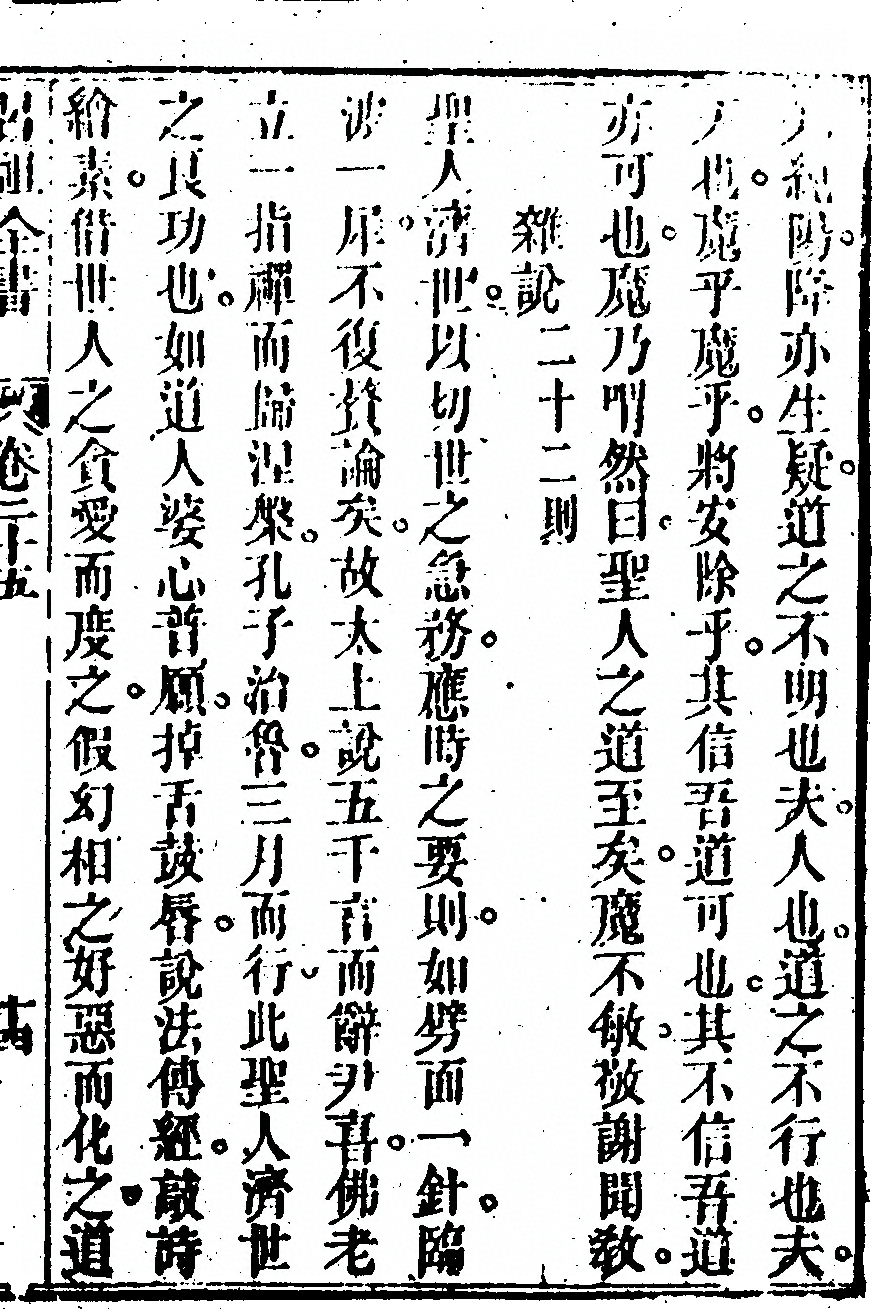 純陽降亦生疑道之不明也夫人也道之不行也夫
也魔乎魔乎將安除乎其信吾道可也其不信吾道
亦可也魔乃喟然曰聖人之道至矣魔不敏敬謝聞敎
雜說二十二則
聖人濟世以切世之急務應時之要則如劈面一針臨
一犀不復贅論矣故太上說五千言而辭尹喜佛老
立一指禪而歸涅槃孔子治魯三月而行此聖人濟世
之良功也如道人婆心普願掉舌鼓唇說法傳經敲詩
繪素借世人之貪愛而度之假幻相之好惡而化之道
呂祖全書 卷二十五 十四